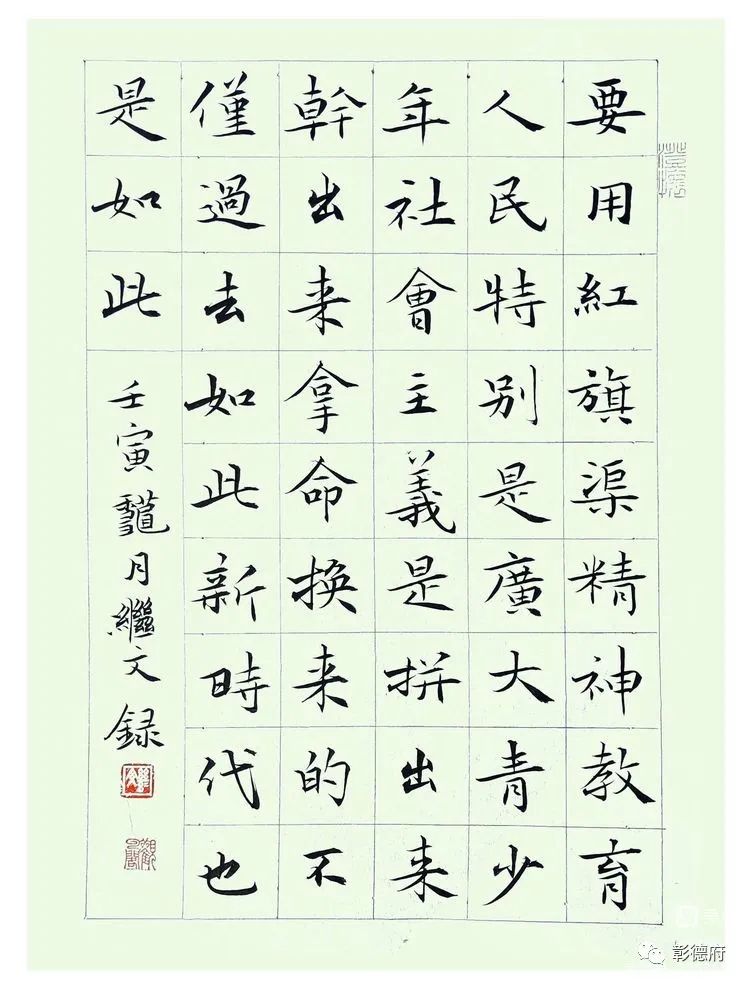 要用紅旗渠精神教育
人民特别是廣大青少
年社會主義是拼出来
幹出来拿命换来的不
僅過去如此新時代也
是如此
壬寅龝月繼文録
彰德府